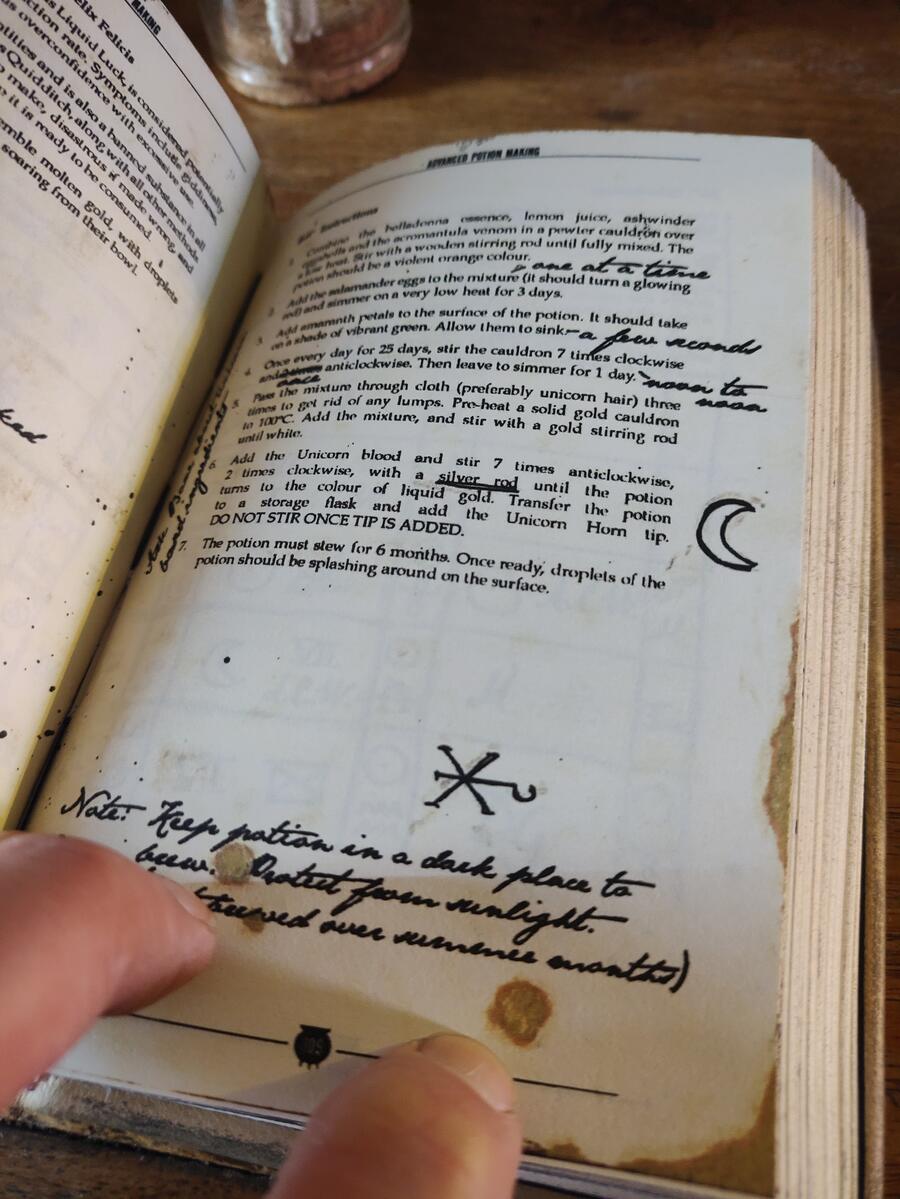 MAKING
Felix Felicis
as Liquid Luck, is considered potentially
action rate. Symptoms include giddiness,
overconfidence with excessive use.
and is also a banned substance in all
Quidditch, along with all other methods
make, disastrous if made wrong, and
it is ready to be consumed.
molten gold, with droplets
soaring from their bowl.
ADVANCED POTION MAKING
Instructions
1. Combine the belladonna essence, lemon juice, ashwinder
eggshells and the acromantula venom in a pewter cauldron over
a low heat. Stir with a wooden stirring rod until fully mixed. The
potion should be a violent orange colour.
one at a time
2. Add the salamander eggs to the mixture (it should turn a glowing
red) and simmer on a very low heat for 3 days.
3. Add amaranth petals to the surface of the potion. It should take
on a shade of vibrant green. Allow them to sink - a few seconds
4. Once every day for 25 days, stir the cauldron 7 times clockwise
and anticlockwise. Then leave to simmer for 1 day. noon to
once
noon
5. Pass the mixture through cloth (preferably unicorn hair) three
times to get rid of any lumps. Pre-heat a solid gold cauldron
to 100°C. Add the mixture, and stir with a gold stirring rod
until white.
6. Add the Unicorn blood and stir 7 times anticlockwise,
2 times clockwise, with a silver rod until the potion
turns to the colour of liquid gold. Transfer the potion
to a storage flask and add the Unicorn Horn tip.
DO NOT STIR ONCE TIP IS ADDED.
7. The potion must stew for 6 months. Once ready, droplets of the
potion should be splashing around on the surface.
about
ingredients
Note: Keep potion in a dark place to
brew. Protect from sunlight.
brewed over summer months)